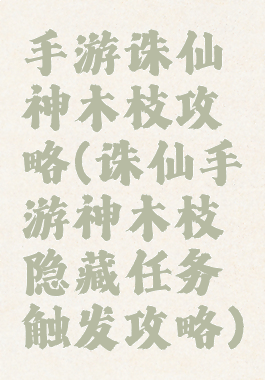 手游诛仙
神木枝攻
略(诛仙手
游神木枝
隐藏任务
触发攻略)